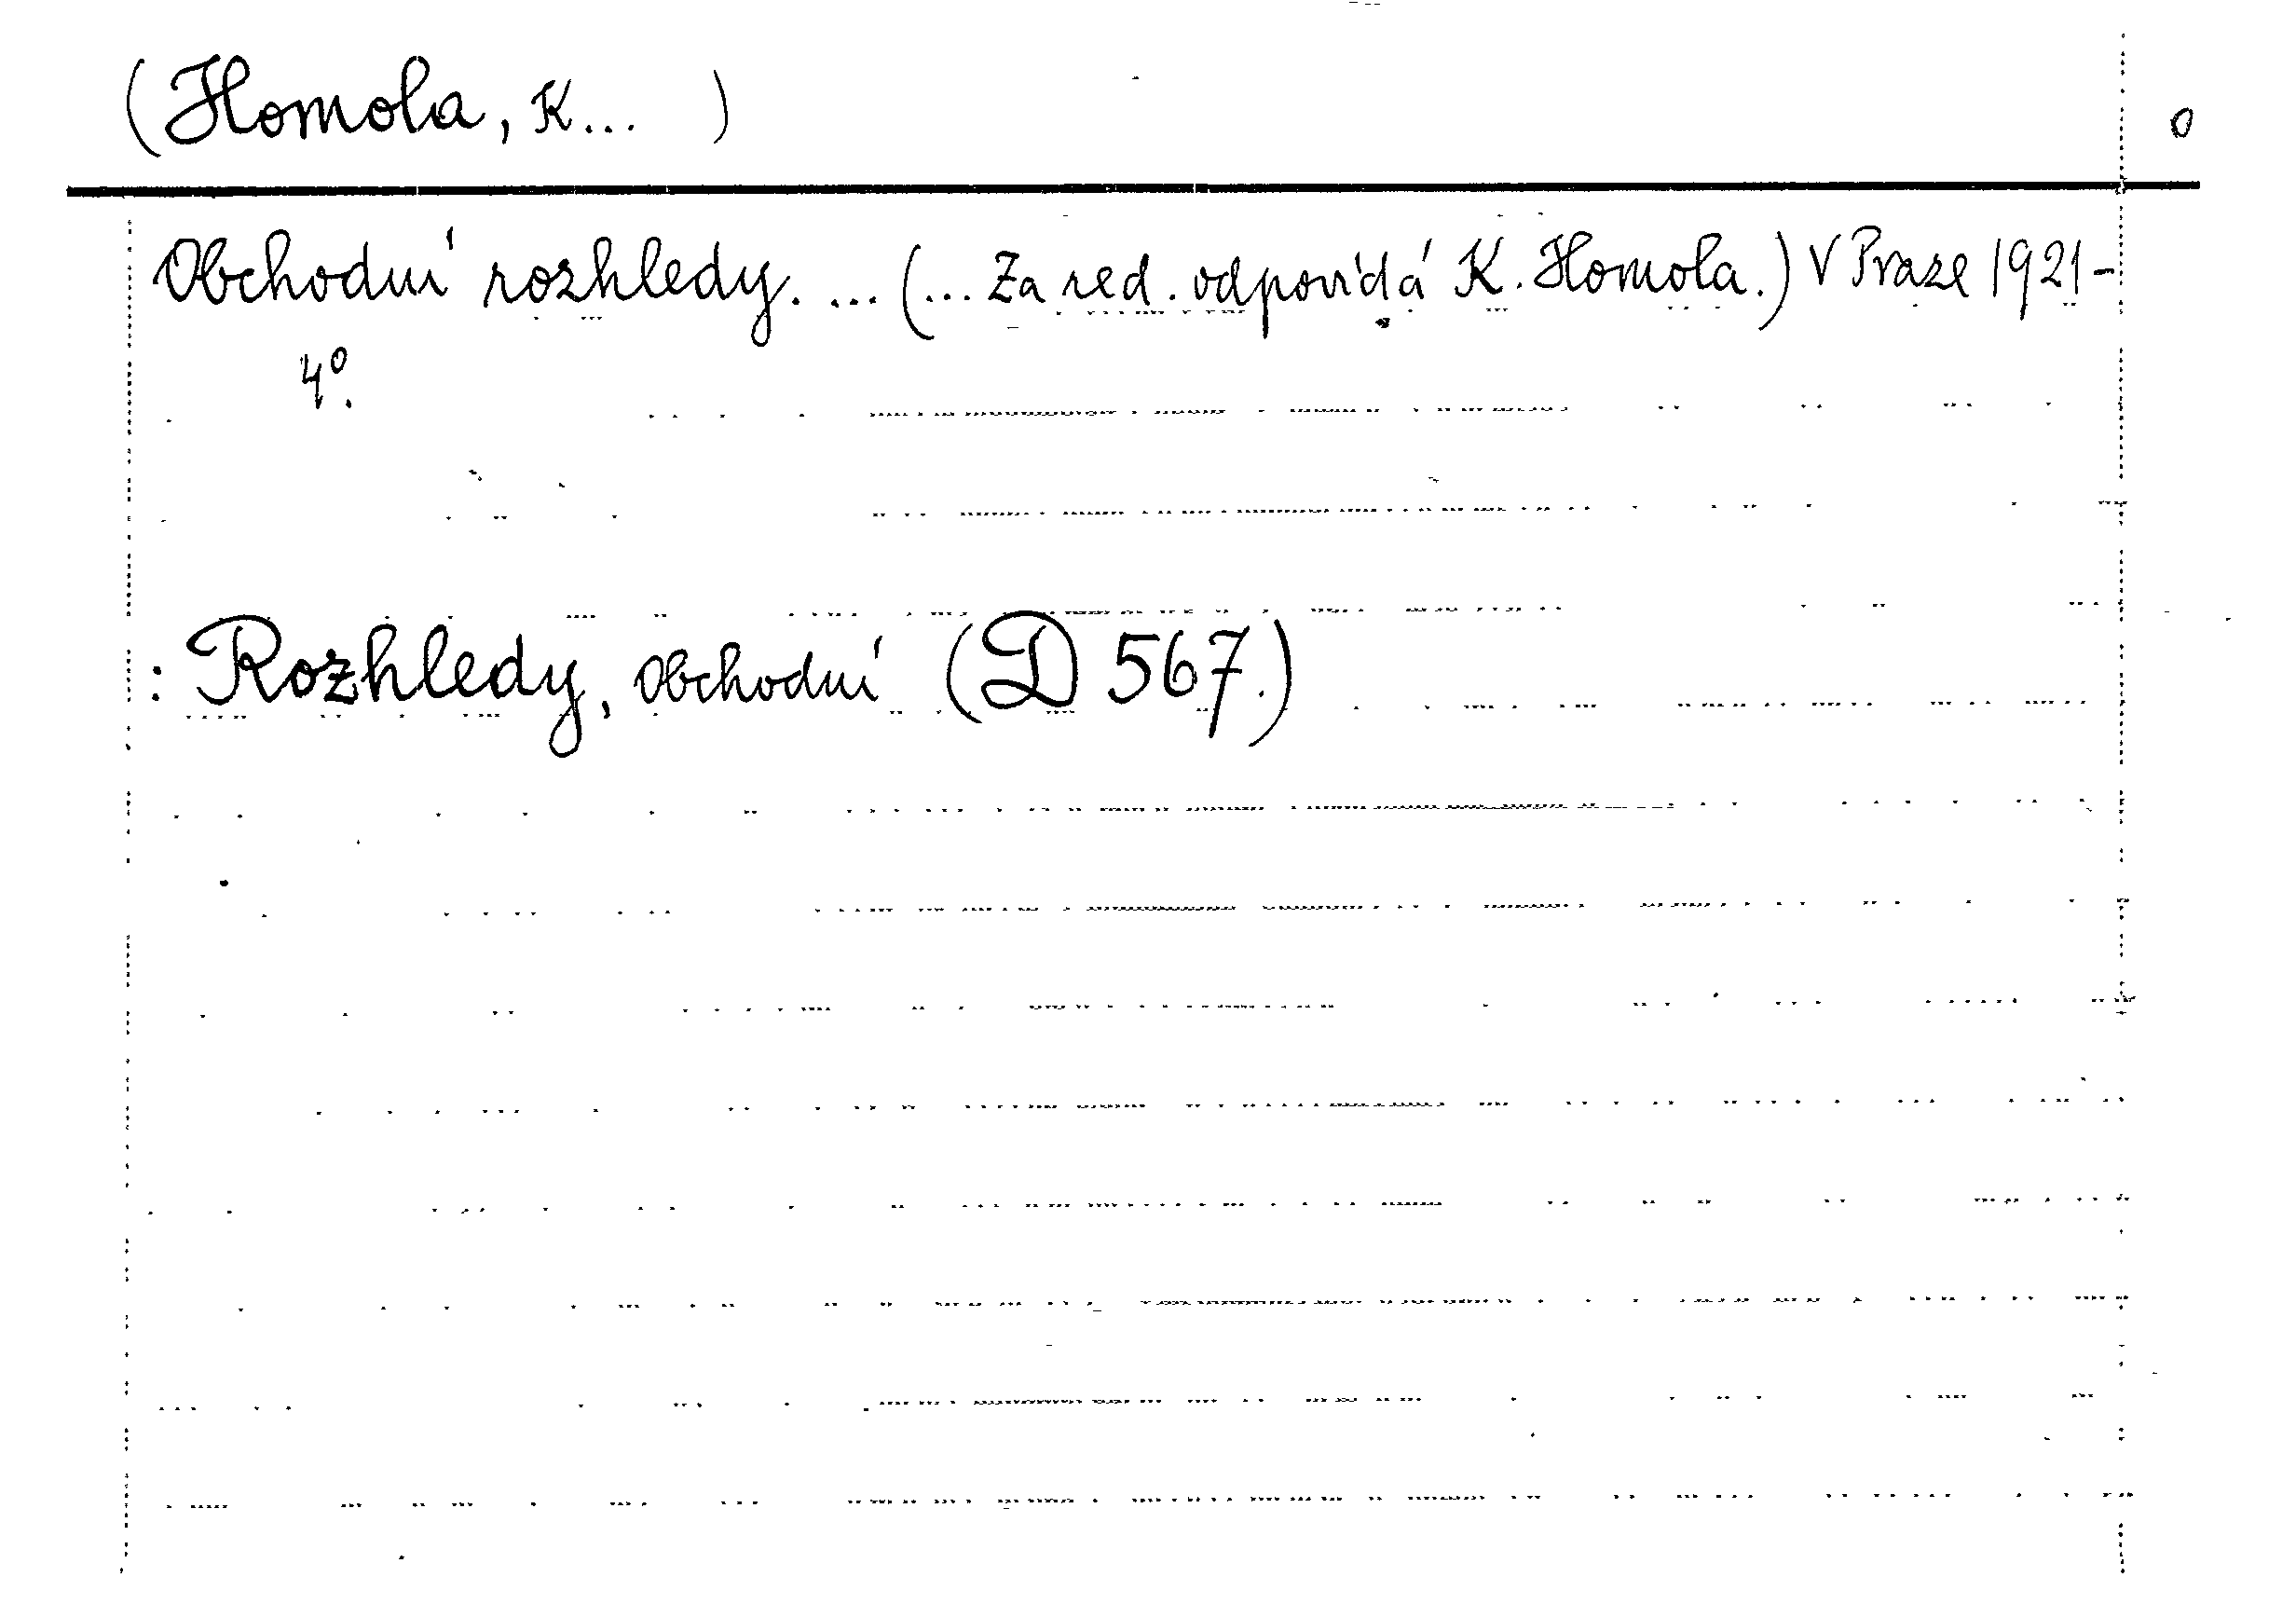 (Homola, K... ) o
Obchodní rozhledy. ... (... Za red. odpovídá K. Homola.) V Praze 1921-
4º.
: Rozhledy, obchodní (D 567.)